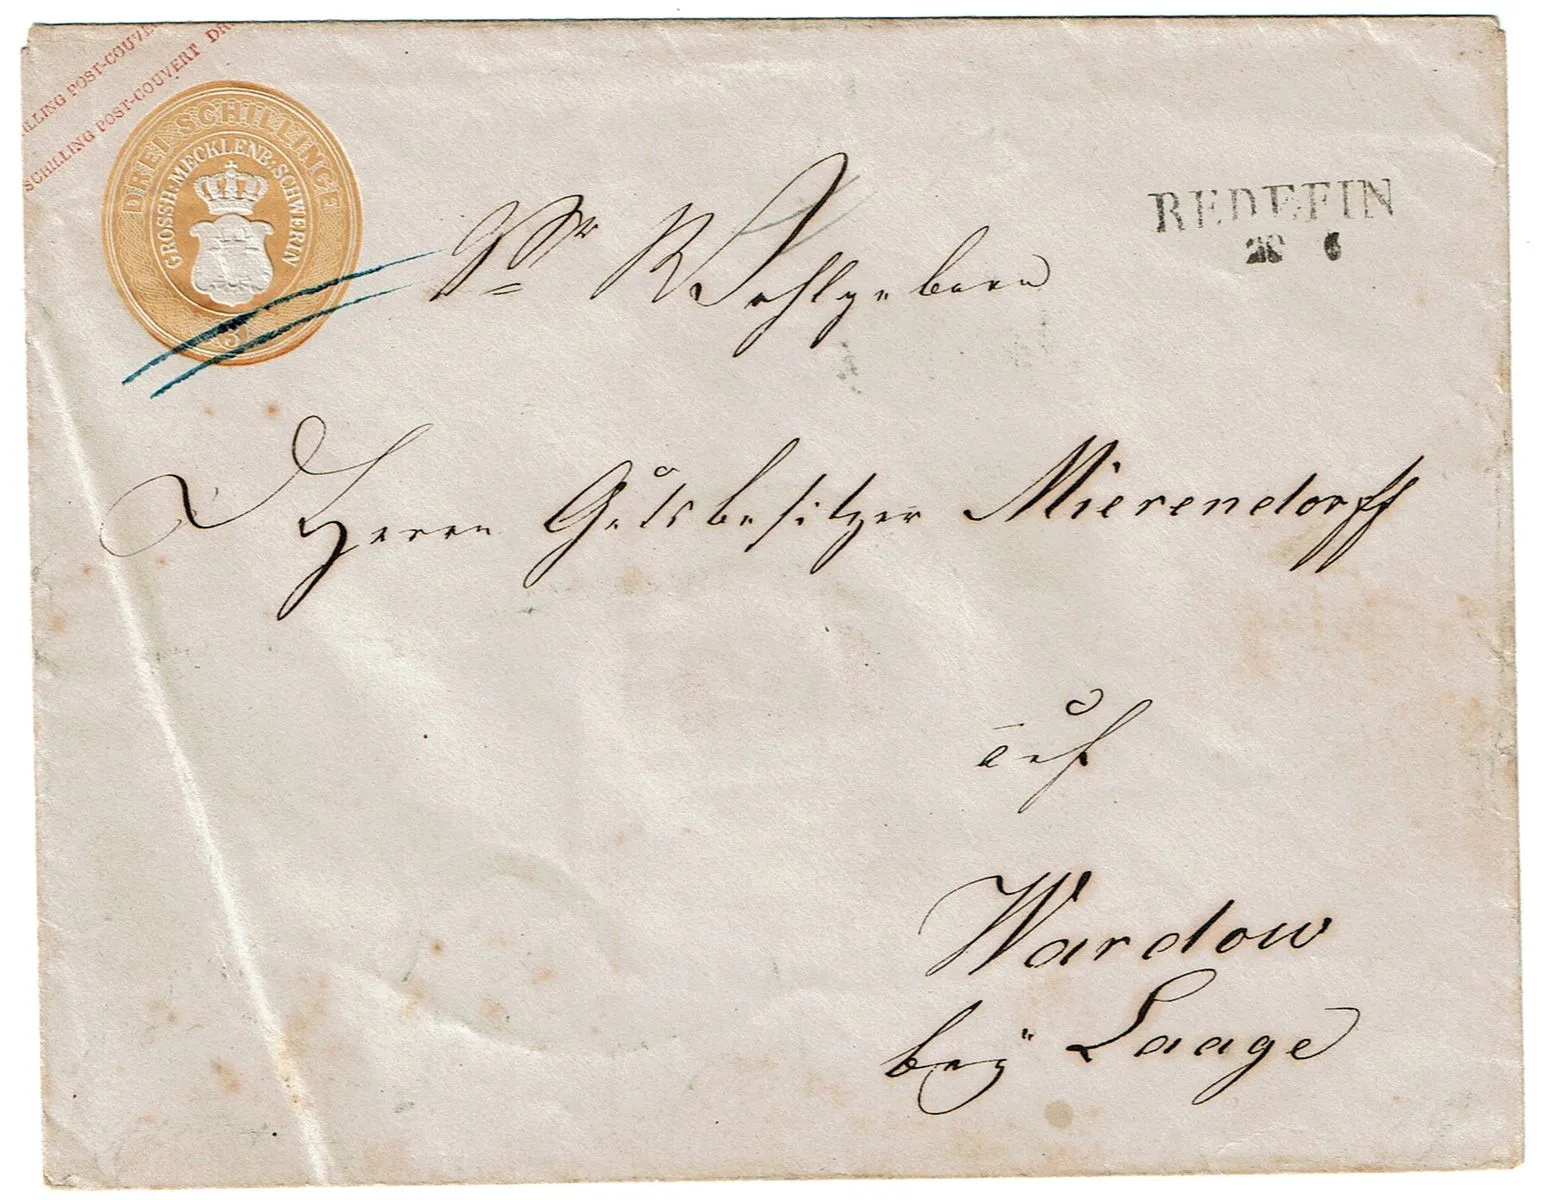 ILLING POST-COUVE
SCHILLING POST-COUVERT DR
DREI SCHILLINGE
GROSSH. MECKLENB. SCHWERIN
3
REDEFIN
28 6
Sr Wohlgeboren
Herrn Gutsbesitzer Mierendorff
auf
Wardow
bey Laage